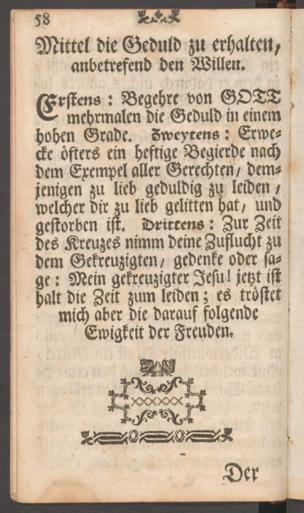 58
Mittel die Geduld zu erhalten,
anbetrefend den Willen.
Erstens: Begehre von GOTT
mehrmalen die Geduld in einem
hohen Grade. Zweytens: Erwe-
cke öfters ein heftige Begierde nach
dem Exempel aller Gerechten, dem-
jenigen zu lieb geduldig zu leiden,
welcher dir zu lieb gelitten hat, und
gestorben ist. Drittens: Zur Zeit
des Kreuzes nimm deine Zuflucht zu
dem Gekreuzigten, gedenke oder sa-
ge: Mein gekreuzigter Jesu! jetzt ist
halt die Zeit zum leiden; es tröstet
mich aber die darauf folgende
Ewigkeit der Freuden.
Der